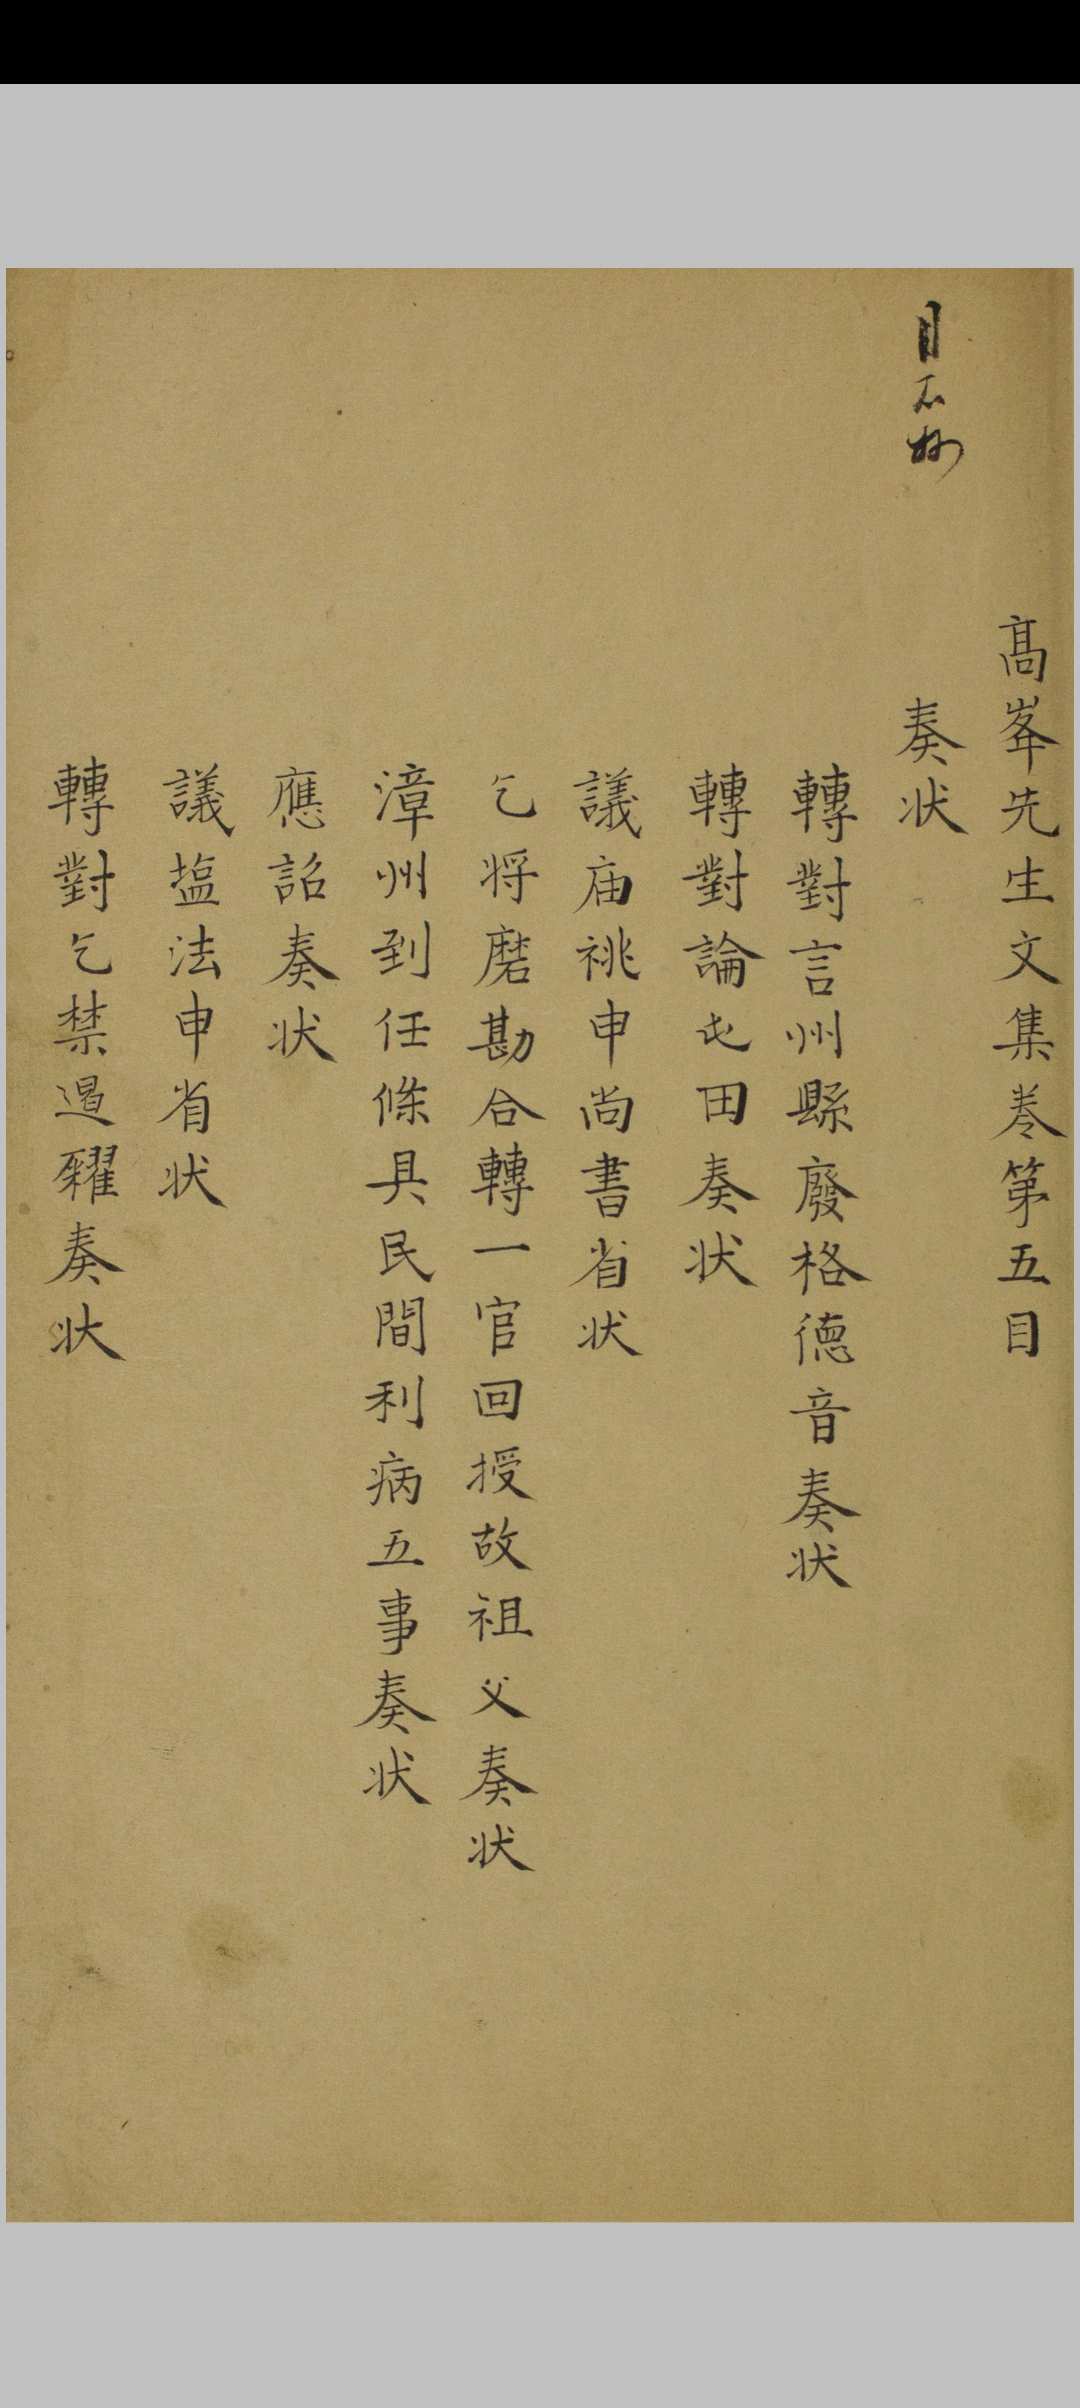 高峯先生文集卷第五目
目不抄
奏状
轉對言州縣廢格德音奏状
轉對論屯田奏状
議庙祧申尚書省状
乞将磨勘合轉一官回授故祖父奏状
漳州到任條具民間利病五事奏状
應詔奏状
議塩法申省状
轉對乞禁遏糴奏状